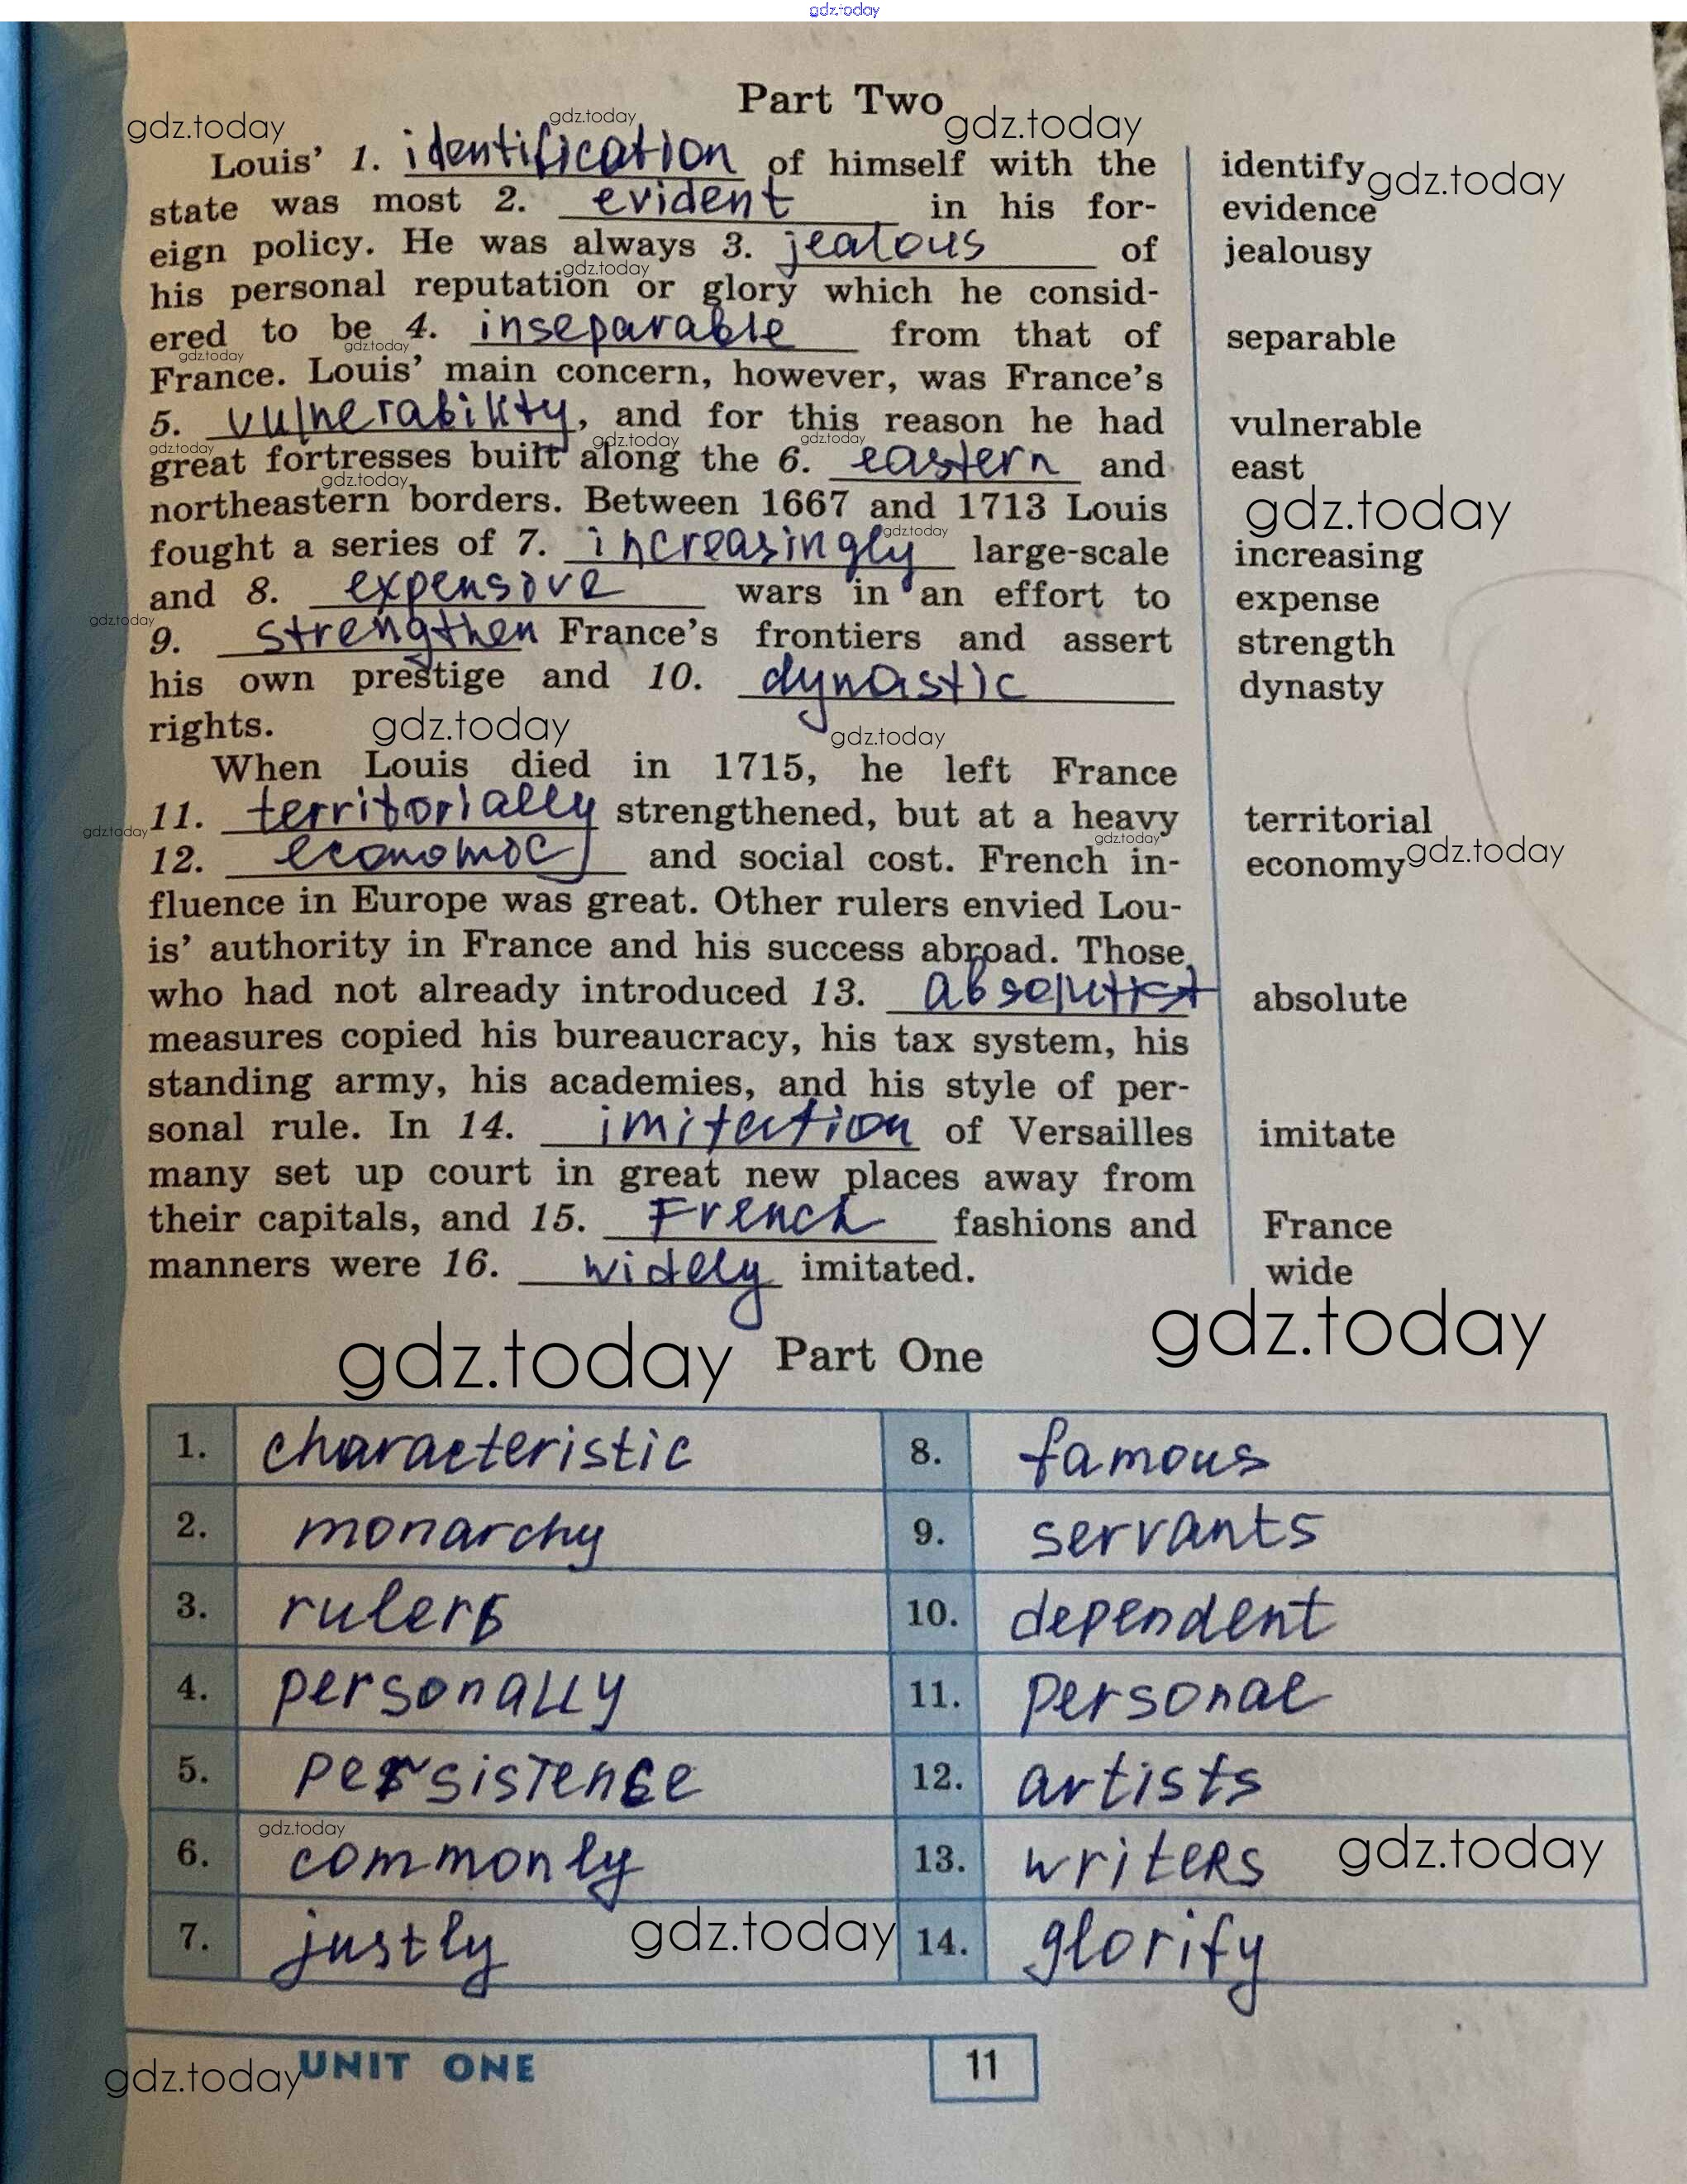 gdz.today
Part Two
gdz.today gdz.today gdz.today
Louis' 1. identification of himself with the identify gdz.today
state was most 2. evident in his for- evidence
eign policy. He was always 3. jealous of jealousy
gdz.today
his personal reputation or glory which he consid-
ered to be 4. inseparable from that of separable
gdz.today gdz.today
France. Louis' main concern, however, was France's
5. vulnerability, and for this reason he had vulnerable
gdz.today gdz.today gdz.today
great fortresses built along the 6. eastern and east
gdz.today
northeastern borders. Between 1667 and 1713 Louis gdz.today
fought a series of 7. increasingly gdz.today large-scale increasing
and 8. expensive wars in an effort to expense
gdz.today
9. strengthen France's frontiers and assert strength
his own prestige and 10. dynastic dynasty
rights. gdz.today gdz.today
When Louis died in 1715, he left France
11. territorially strengthened, but at a heavy territorial
gdz.today gdz.today
12. economic and social cost. French in- economy gdz.today
fluence in Europe was great. Other rulers envied Lou-
is' authority in France and his success abroad. Those
who had not already introduced 13. absolutist absolute
measures copied his bureaucracy, his tax system, his
standing army, his academies, and his style of per-
sonal rule. In 14. imitation of Versailles imitate
many set up court in great new places away from
their capitals, and 15. French fashions and France
manners were 16. widely imitated. wide
gdz.today Part One gdz.today
1. characteristic 8. famous
2. monarchy 9. servants
3. rulers 10. dependent
4. personally 11. personal
5. persistence 12. artists
gdz.today
6. commonly 13. writers gdz.today
7. justly gdz.today 14. glorify
gdz.today UNIT ONE 11